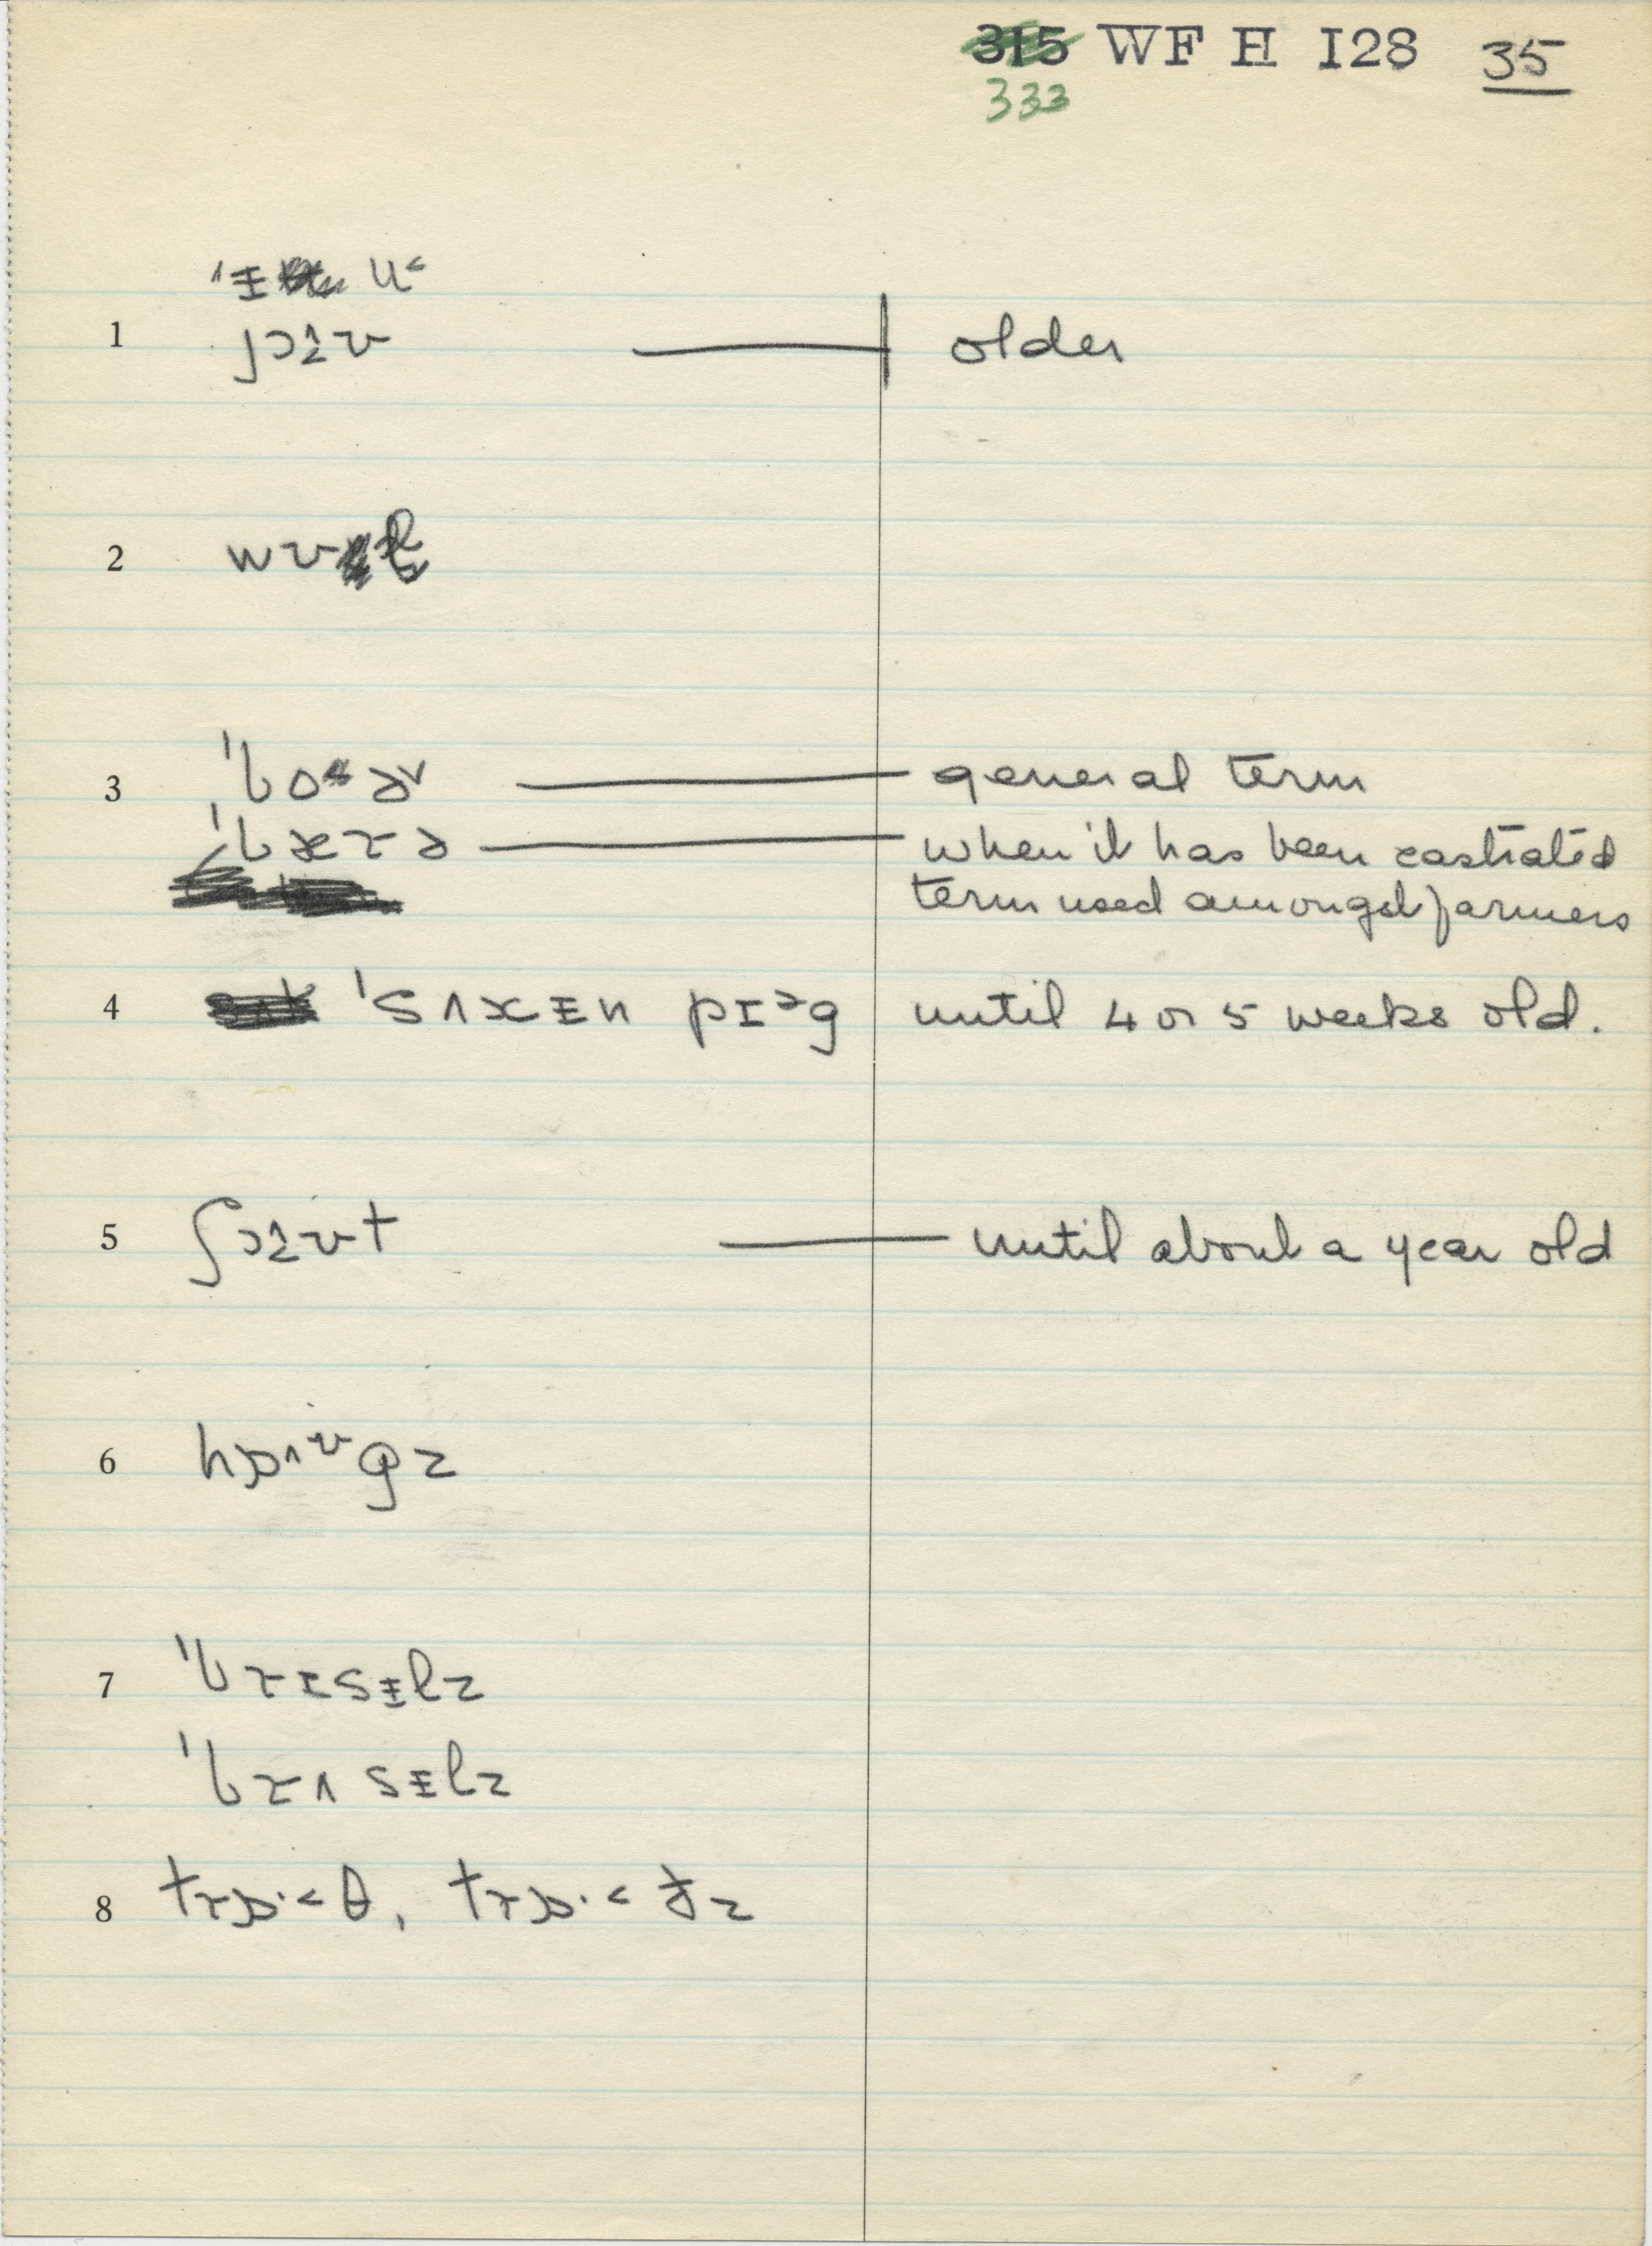 315 WF H 128 35
333
'ɪ̵ u˂
1 ʃɔ̝ʊ older
2 wʊɫ
3 'bo˔ə˅ general term
'bæɾə when it has been castrated
term used amongst farmers
4 'sʌxɪ̵n pɪᵊg until 4 or 5 weeks old.
5 ʃɔ̝ʊt until about a year old
6 hɒʌᶷgz
7 'bɾɪsɪ̵lz
'bɾʌsɪ̵lz
8 tɾɒ·˂θ, tɾɒ·˂ðz